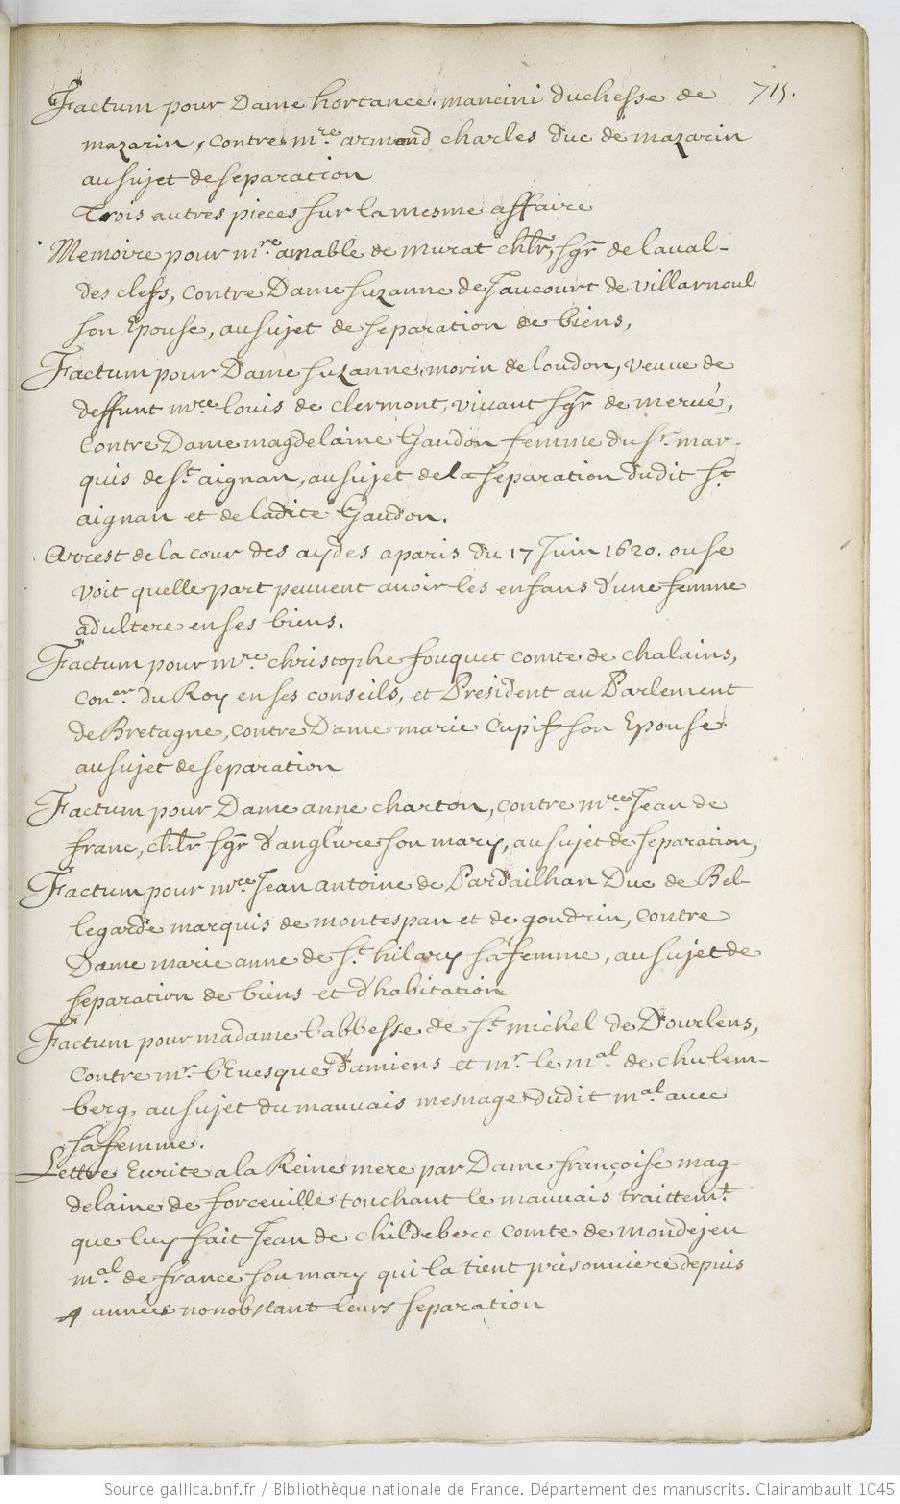 Factum pour Dame hortance mancini duchesse de 715.
mazarin, contre mre armand charles duc de mazarin
au sujet de separation
Trois autres pieces sur la mesme affaire
Memoire pour mre amable de murat chlr, sgr de laval-
des clefs, contre Dame suzanne de Jaucourt de villarnoul
son Epouse, au sujet de separation de biens,
Factum pour Dame suzanne morin de loudon, veuve de
deffunt mre louis de clermont, vivant sgr de mervé,
contre Dame magdelaine Gaudon femme du sr. mar-
quis de st aignan, au sujet de la separation dudit st
aignan et de ladite Gaudon.
Arrest de la cour des aydes a paris du 17 Juin 1620. ou se
voit quelle part peuvent avoir les enfans d'une femme
adultere en ses biens.
Factum pour mre christophe fouquet comte de chalains,
Coner du Roy en ses conseils, et President au Parlement
de Bretagne, contre Dame marie Cupif son Epouse
au sujet de separation
Factum pour Dame anne charton, contre mre Jean de
franc, chlr sgr d'anglure son mary, au sujet de separation,
Factum pour mre Jean antoine de Pardailhan Duc de Bel-
legarde marquis de montespan et de gondrin, contre
Dame marie anne de st hilary sa femme, au sujet de
separation de biens et d'habitation
Factum pour madame l'abbesse de st michel de Dourlens,
contre mr l'Evesque D'amiens et mr le mal de chulem-
berg, au sujet du mauvais mesnage dudit mal avec
sa femme.
Lettre Ecrite a la Reine mere par Dame françoise mag-
delaine de forceville touchant le mauvais traittemt
que luy fait Jean de childeberc comte de mondejeu
mal de france son mary qui la tient prisonniere depuis
4 années nonobstant leurs separation
Source gallica.bnf.fr / Bibliothèque nationale de France. Département des manuscrits. Clairambault 1045